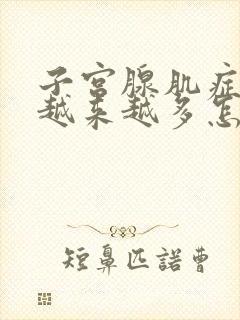 子宫腺肌症
越来越多怎
短鼻匹諾曹